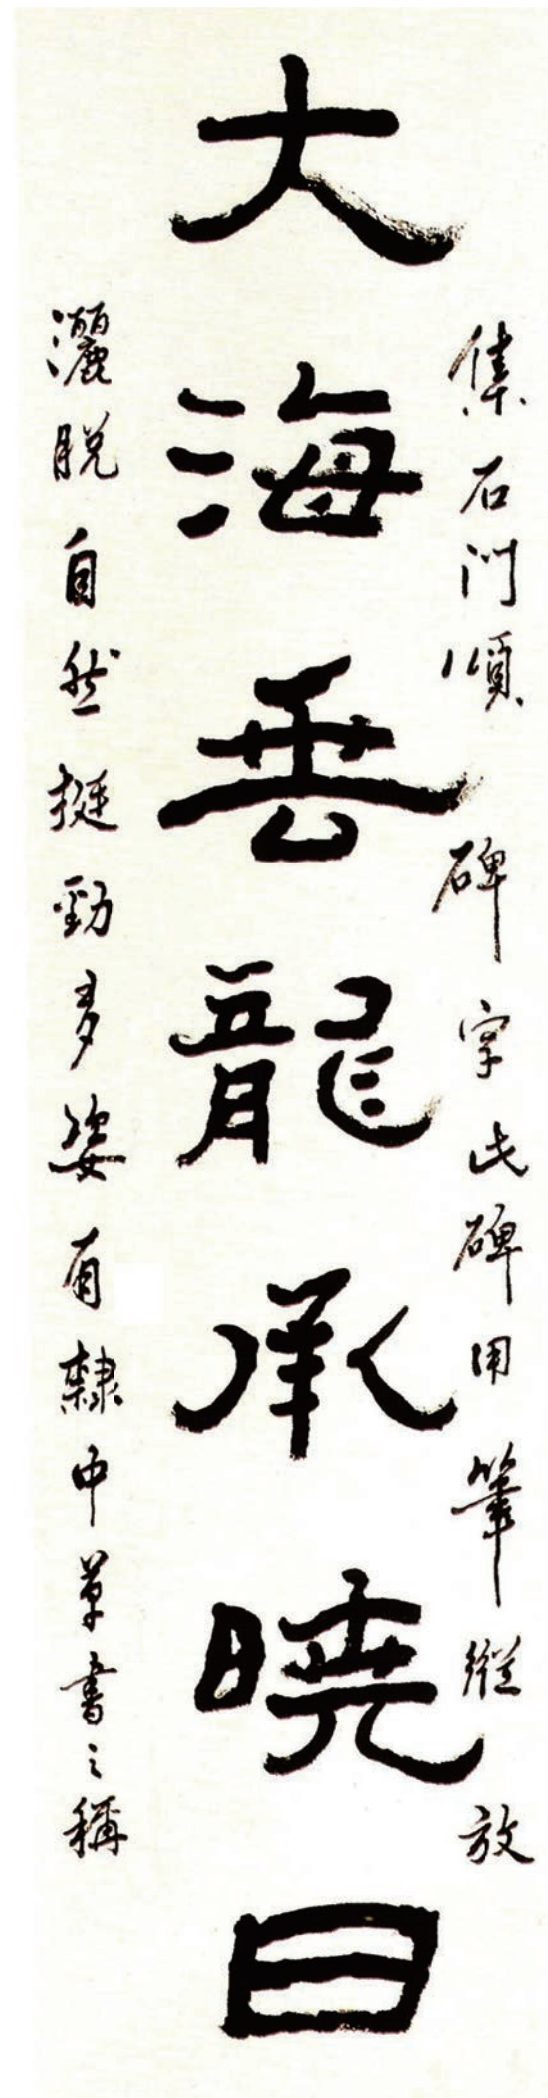 大海垂龍承曉日
集石門頌碑字此碑用筆縱放
灑脱自然挺勁多姿有隸中草書之稱